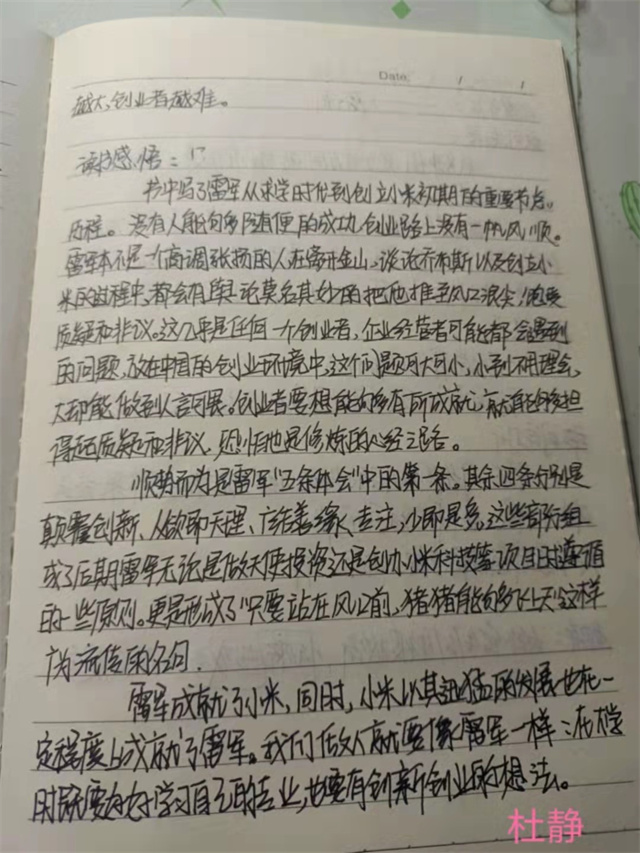 Date: / /
越大,创业者越难。
读书感悟:
书中写了雷军从求学时代到创立小米初期的重要节点
历程。没有人能够随随便便的成功,创业路上没有一帆风顺。
雷军本不是一个高调张扬的人,在离开金山,谈论乔布斯以及创立小
米的过程中,都会有舆论莫名其妙的把他推至风口浪尖!饱受
质疑和非议。这几乎是任何一个创业者,企业经营者可能都会遇到
的问题,放在中国的创业环境中,这个问题可大可小,小到不用理会,
大却能做到人言可畏。创业者要想能够有所成就,就能够担
得起质疑和非议,恐怕也是修炼的必经之路。
顺势而为是雷军"五条体会"中的第一条。其余四条分别是
颠覆创新、人欲即天理、广结善缘、专注,少即是多。这些部分组
成了后期雷军无论是做天使投资还是创办小米科技等项目时遵循
的一些原则。更是形成了"只要站在风口前,猪猪能够飞上天"这样
广为流传的名句.
雷军成就了小米,同时,小米以其迅猛的发展也在一
定程度上成就了雷军。我们做人就要像雷军一样:在大学
时既要好好学习自己的专业,也要有创新创业的想法。
杜静